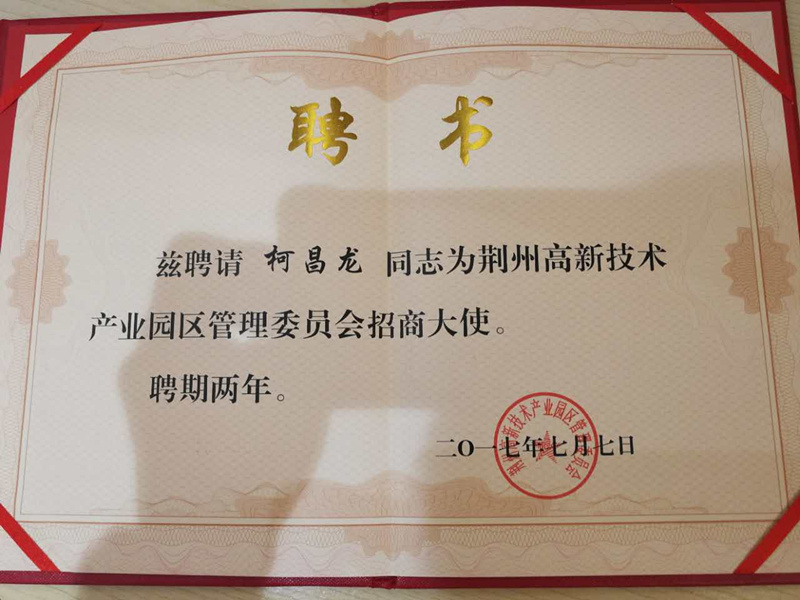 聘 书
兹聘请 柯昌龙 同志为荆州高新技术
产业园区管理委员会招商大使。
聘期两年。
二O一七年七月七日
荆州高新技术产业园区管理委员会